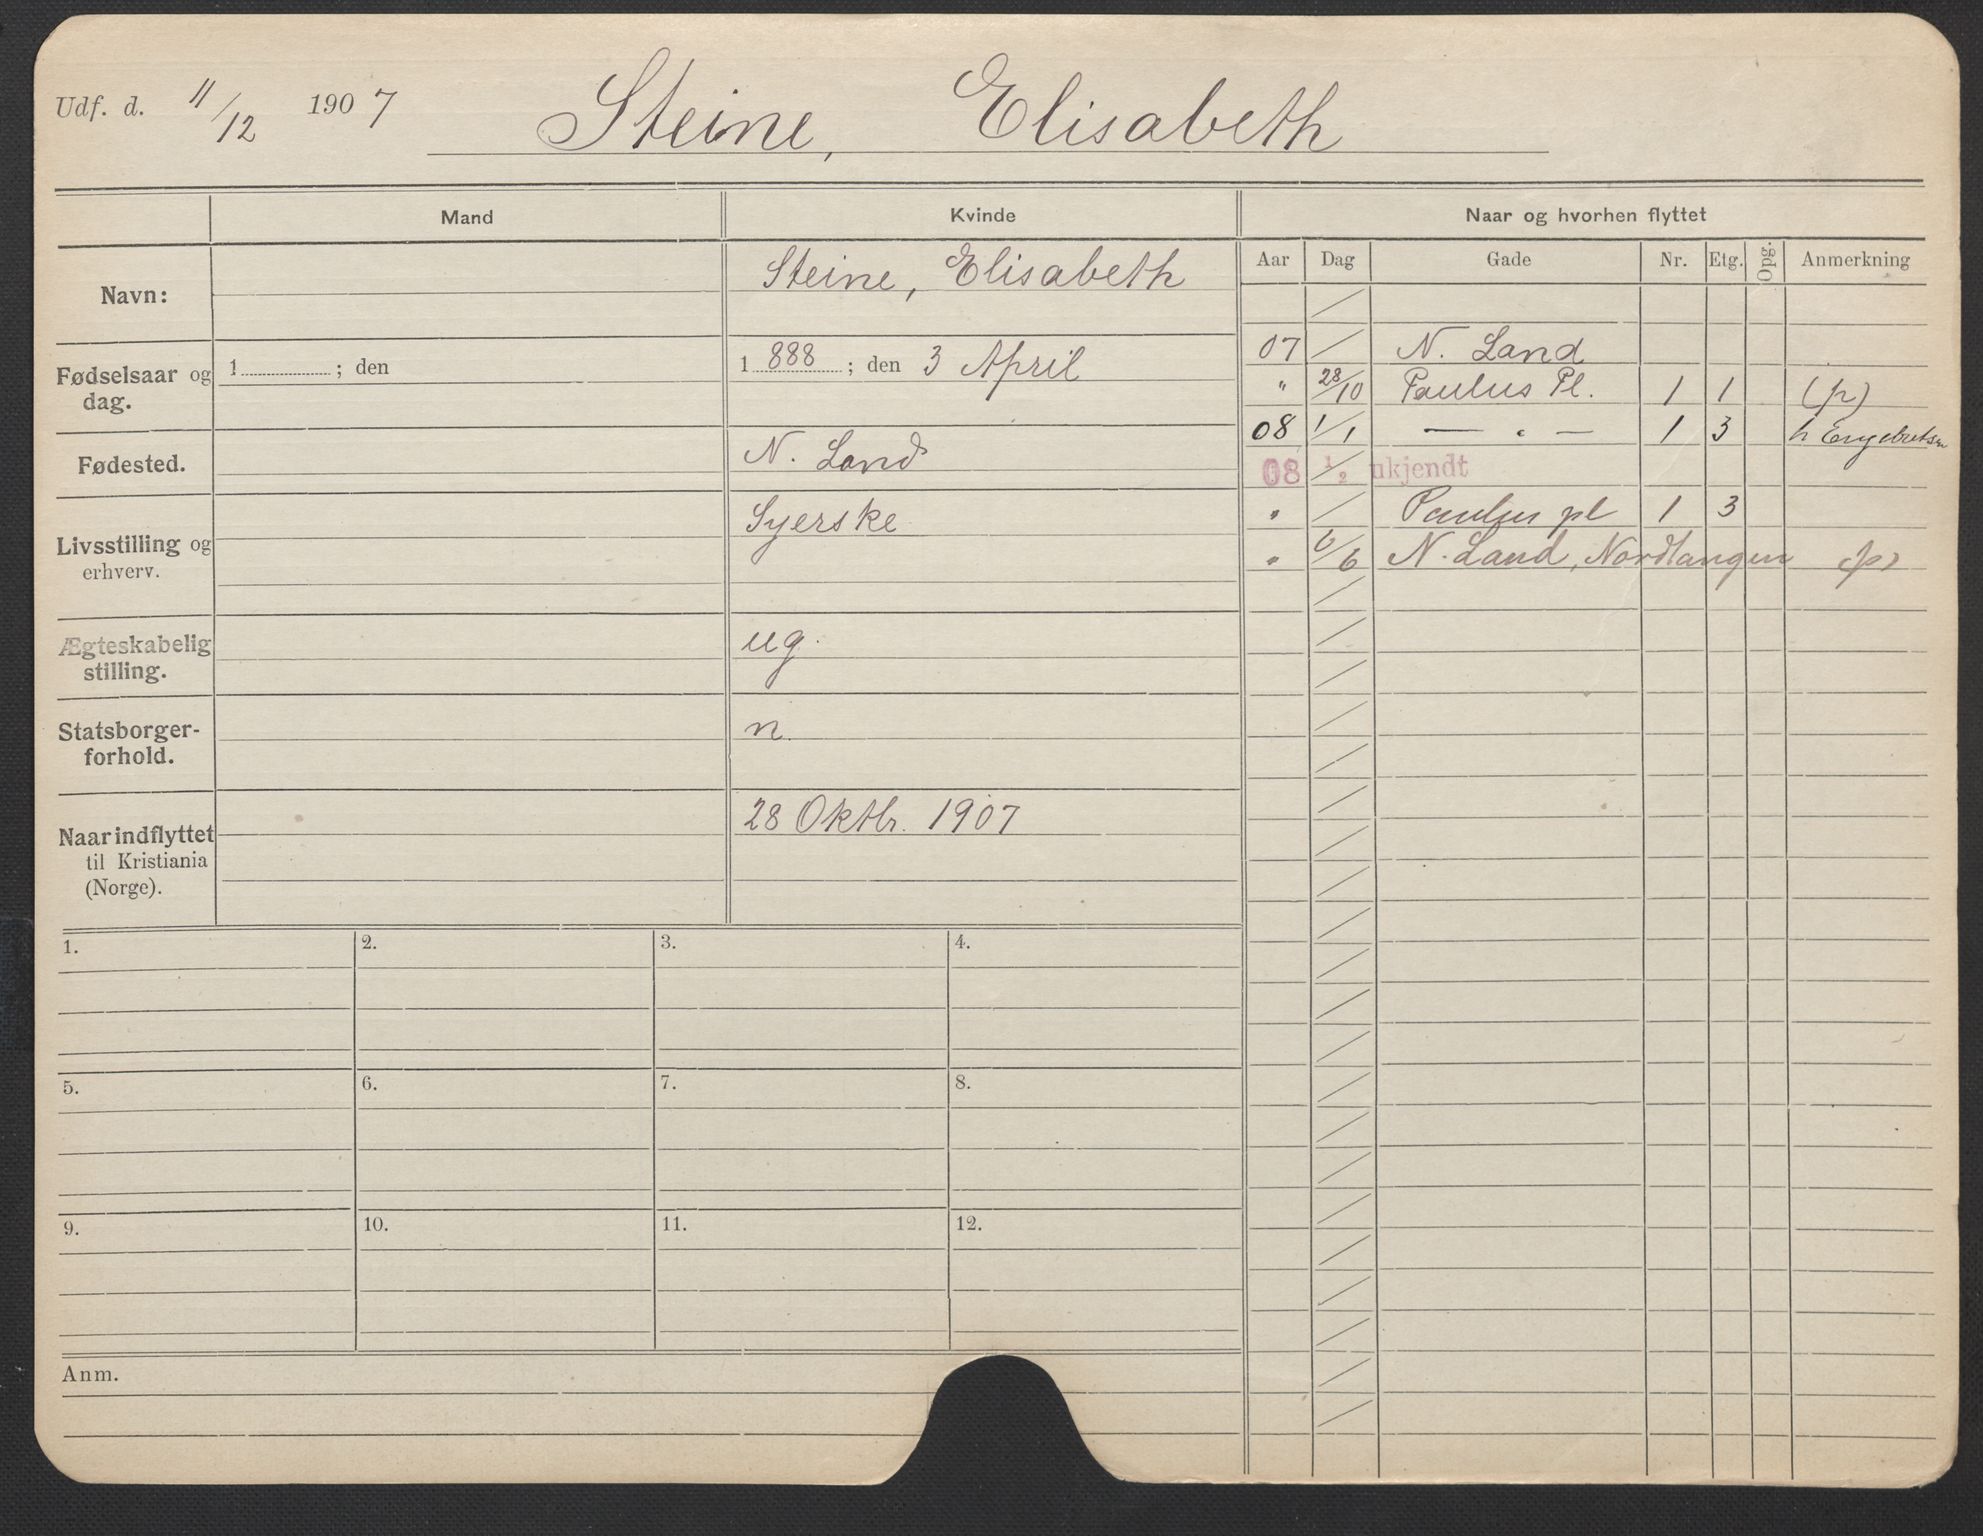 Udf. d. 11/12 1907 Steine, Elisabeth
Mand Kvinde Naar og hvorhen flyttet
Aar Dag Gade Nr. Etg. Opg. Anmerkning
Navn: Steine, Elisabeth
Fødselsaar og dag. 1 ; den 1 888 ; den 3 April
Fødested. N. Land
Livsstilling og erhverv. Syerske
Ægteskabelig stilling. ug.
Statsborger-forhold. n.
Naar indflyttet til Kristiania (Norge). 28 Oktbr. 1907
07 / N. Land
" 28/10 Paulus Pl. 1 1 (p)
08 1/1 — " — 1 3 h Engebretsen
08 1/2 ukjendt
" / Paulus pl 1 3
" 6/6 N. Land, Nordlangen (p)
1. 2. 3. 4.
5. 6. 7. 8.
9. 10. 11. 12.
Anm.